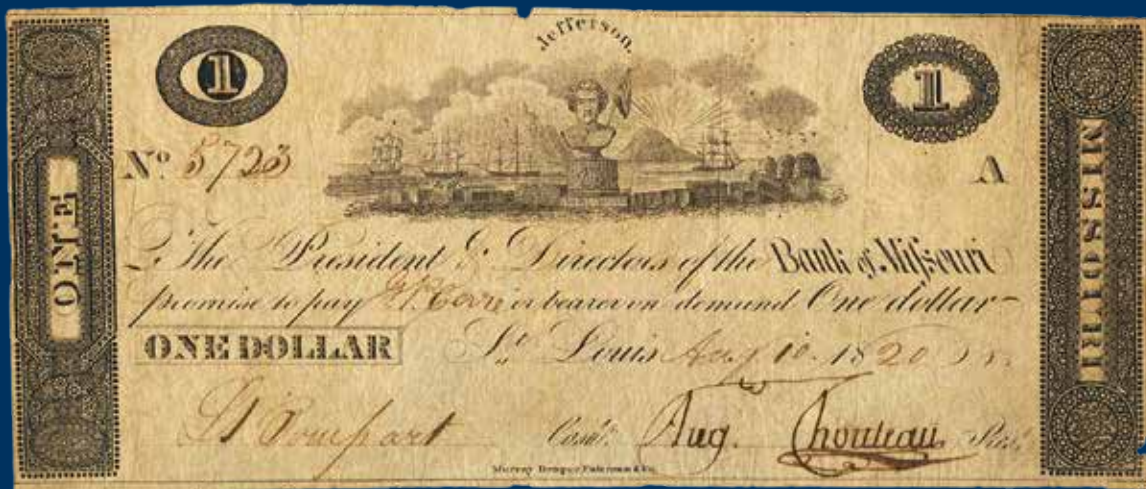 Jefferson.
1
1
ONE
MISSOURI
No 5723
A
The President & Directors of the Bank of Miſsouri
promise to pay or bearer on demand One dollar
ONE DOLLAR St Louis Aug 10. 1820
Cashr. Aug. Chouteau Prest
Murray Draper Fairman & Co.